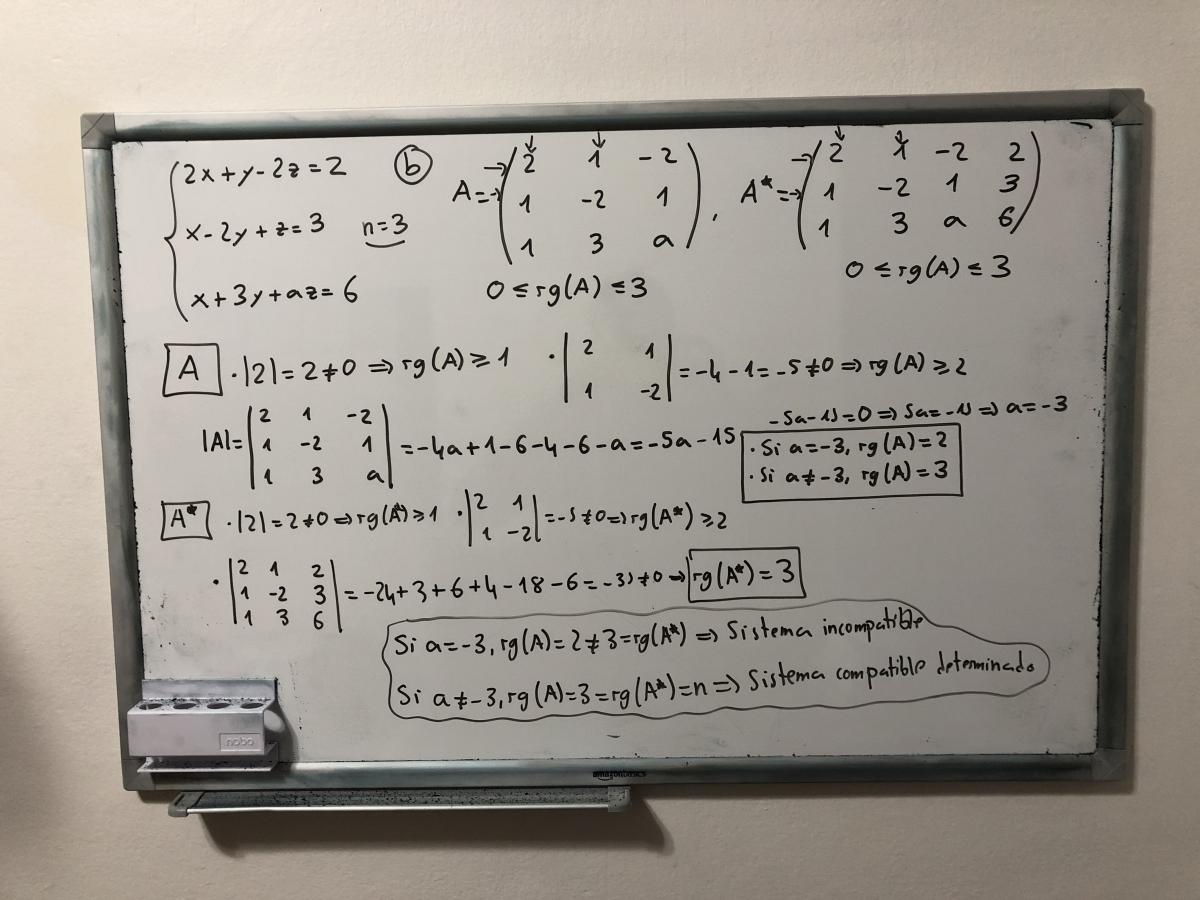 { 2x+y-2z=2
x-2y+z=3 n=3
x+3y+az=6
b A= ( 2 1 -2
1 -2 1
1 3 a ) , A*= ( 2 1 -2 2
1 -2 1 3
1 3 a 6 )
0 ≤ rg(A) ≤ 3
0 ≤ rg(A) ≤ 3
A · |2| = 2 ≠ 0 ⇒ rg(A) ≥ 1 · | 2 1
1 -2 | = -4-1 = -5 ≠ 0 ⇒ rg(A) ≥ 2
|A| = | 2 1 -2
1 -2 1
1 3 a | = -4a+1-6-4-6-a = -5a-15
-5a-15=0 ⇒ 5a=-15 ⇒ a=-3
· Si a=-3, rg(A)=2
· Si a≠-3, rg(A)=3
A* · |2| = 2 ≠ 0 ⇒ rg(A*) ≥ 1 · | 2 1
1 -2 | = -5 ≠ 0 ⇒ rg(A*) ≥ 2
· | 2 1 2
1 -2 3
1 3 6 | = -24+3+6+4-18-6 = -35 ≠ 0 ⇒ rg(A*) = 3
Si a=-3, rg(A)=2≠3=rg(A*) ⇒ Sistema incompatible
Si a≠-3, rg(A)=3=rg(A*)=n ⇒ Sistema compatible determinado
nobo
amazonbasics